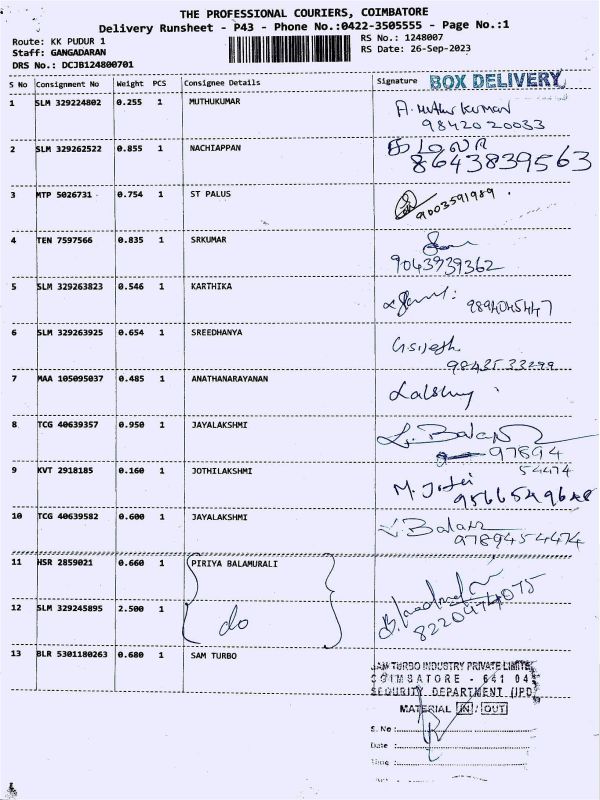 THE PROFESSIONAL COURIERS, COIMBATORE
Delivery Runsheet - P43 - Phone No.:0422-3505555 - Page No.:1
Route: KK PUDUR 1
Staff: GANGADARAN
DRS No.: DCJB124800701
RS No.: 1248007
RS Date: 26-Sep-2023
S No Consignment No Weight PCS Consignee Details Signature BOX DELIVERY
1 SLM 329224802 0.255 1 MUTHUKUMAR A. Muthu Kumar
98420 20033
2 SLM 329262522 0.855 1 NACHIAPPAN
8643839563
3 MTP 5026731 0.754 1 ST PALUS 9003591989
4 TEN 7597566 0.835 1 SRKUMAR
9043939362
5 SLM 329263823 0.546 1 KARTHIKA 9894045447
6 SLM 329263925 0.654 1 SREEDHANYA
98435 33299
7 MAA 105095037 0.485 1 ANATHANARAYANAN
8 TCG 40639357 0.950 1 JAYALAKSHMI L. Balan
97894
54474
9 KVT 2918185 0.160 1 JOTHILAKSHMI M. Jothi
10 TCG 40639582 0.600 1 JAYALAKSHMI L. Balan
9789454474
11 HSR 2859021 0.660 1 PIRIYA BALAMURALI
12 SLM 329245895 2.500 1 do
13 BLR 5301180263 0.680 1 SAM TURBO
JAM TURBO INDUSTRY PRIVATE LIMITE
COIMBATORE - 641 04
SECURITY DEPARTMENT (JPD)
MATERIAL IN / OUT
S. No :
Date :
Time :